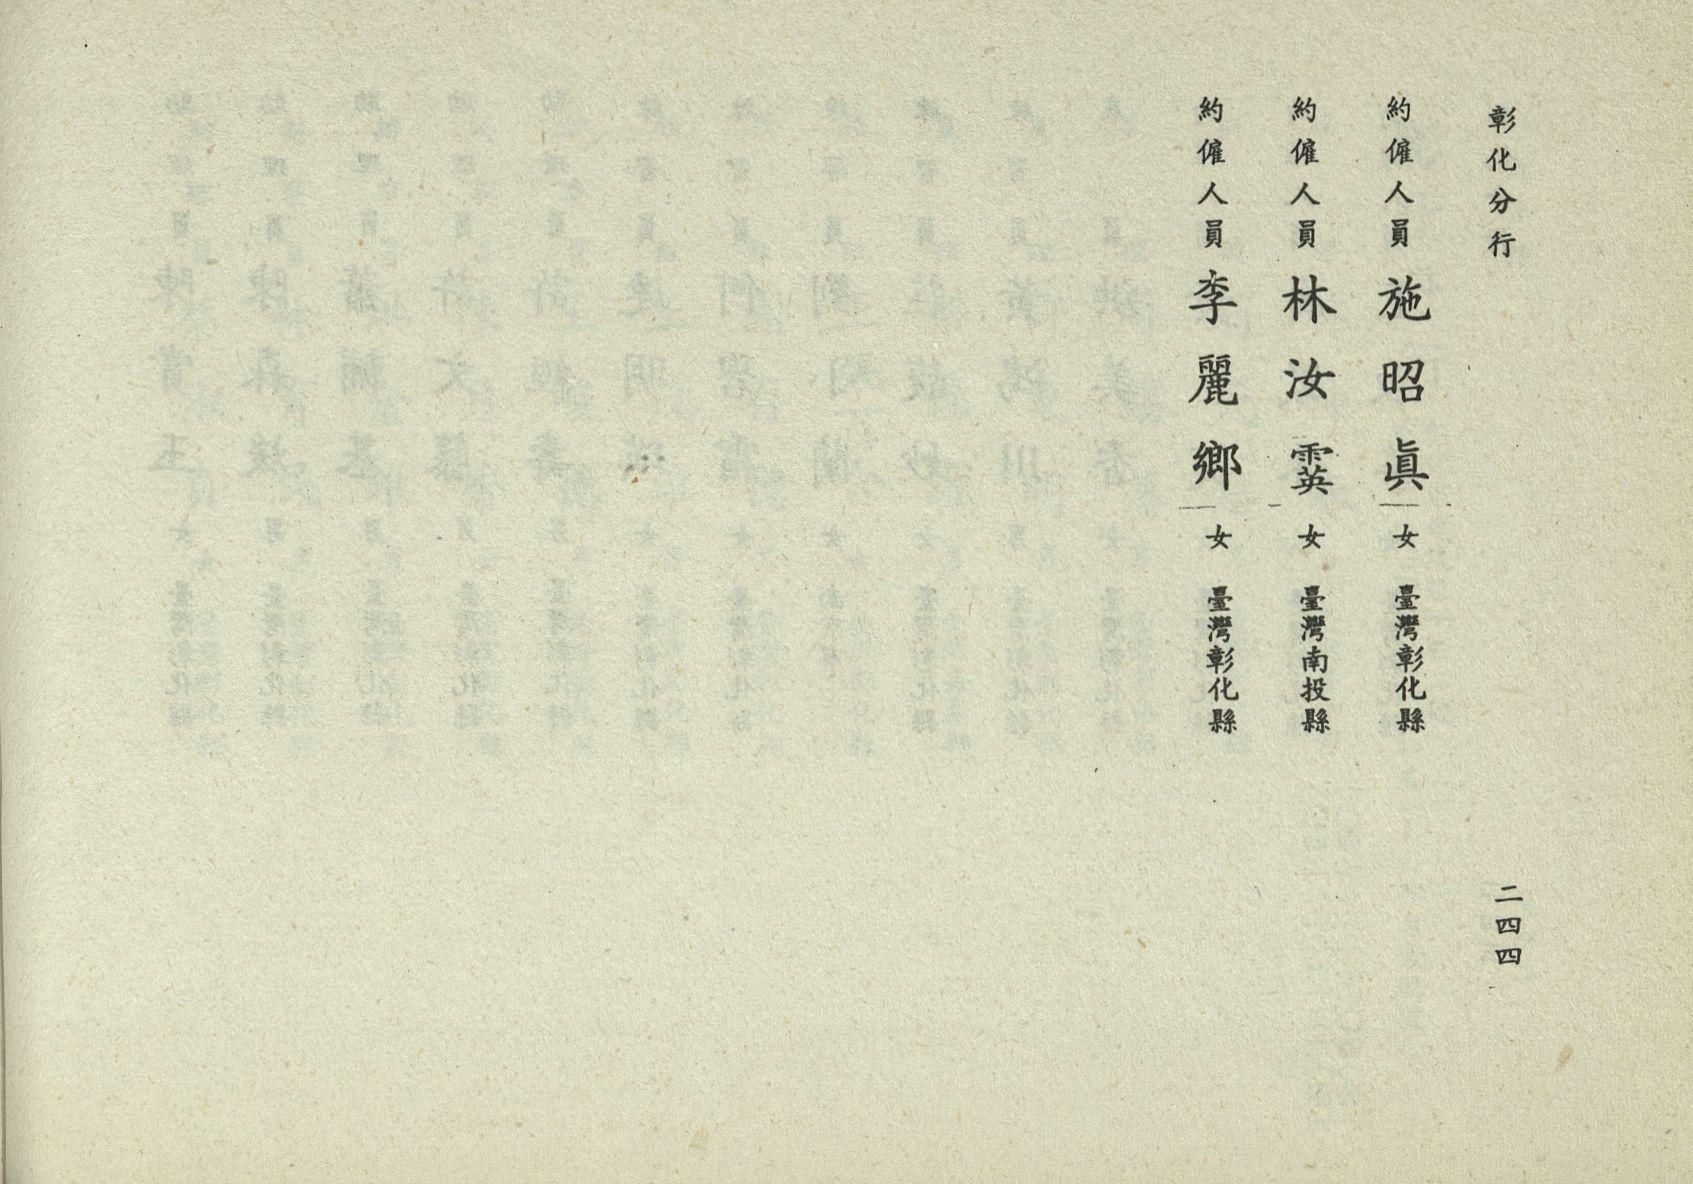 彰化分行
約僱人員 施昭眞 女 臺灣彰化縣
約僱人員 林汝霙 女 臺灣南投縣
約僱人員 李麗鄉 女 臺灣彰化縣
二四四